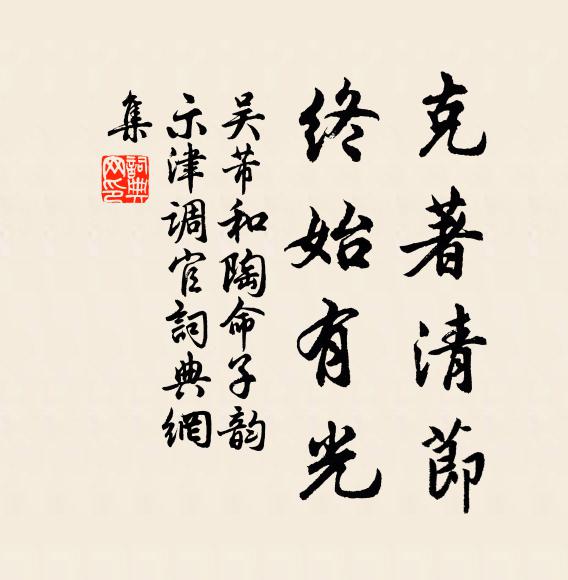 克著清節
終始有光
吴芾和陶命子韵
示津调官詞典網
集
詞典网印